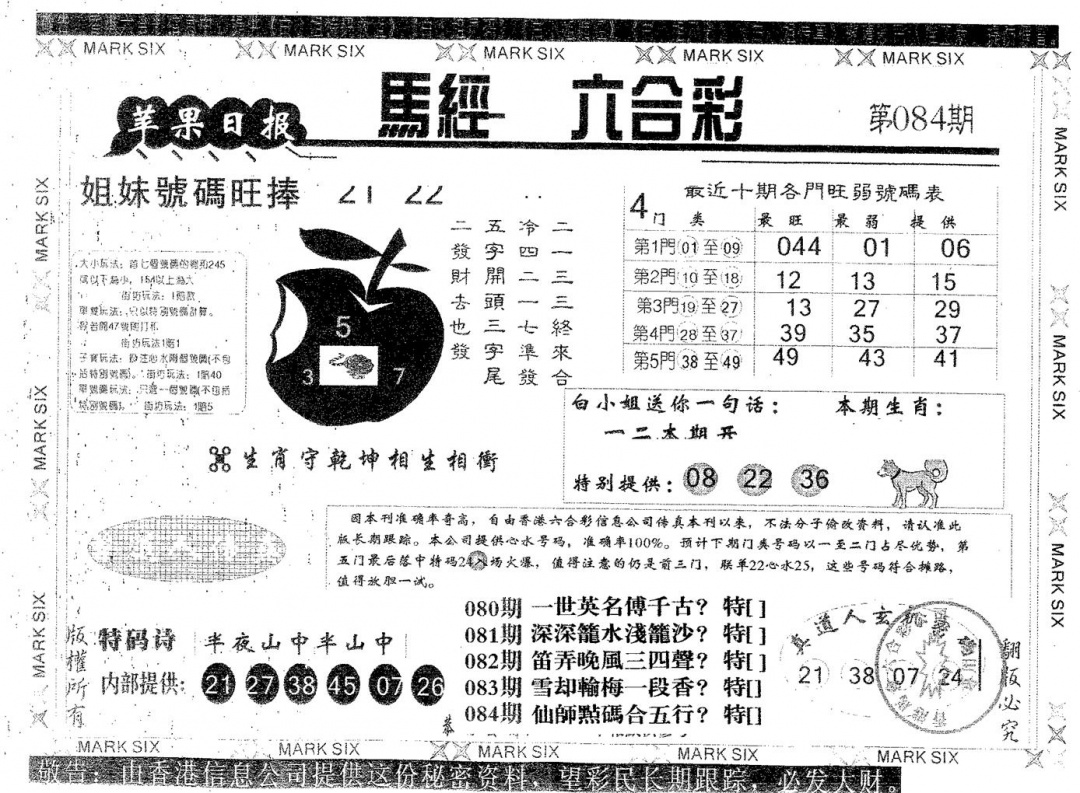 MARK SIX MARK SIX MARK SIX MARK SIX MARK SIX
苹果日报
馬經 六合彩
第084期
姐妹號碼旺捧 21 22
二發財去也發
五字開頭三字尾
冷四二一七準發
二一三三終來合
5
3 7
大小玩法：首七個號碼的總和245
或以下為小，154以上為大
街坊玩法：1賠款
單雙玩法：只以特別號碼計算。
街坊玩法1賠1
街坊玩法：1賠40
單號碼玩法：只選一個號碼(不包括
特別號碼)。街坊玩法：1賠5
最近十期各門旺弱號碼表
4门 类 最旺 最弱 提供
第1門 01至09 044 01 06
第2門 10至18 12 13 15
第3門 19至27 13 27 29
第4門 28至37 39 35 37
第5門 38至49 49 43 41
生肖守乾坤相生相衝
白小姐送你一句话： 本期生肖：
一二本期开
特别提供： 08 22 36
因本刊准确率奇高，自由香港六合彩信息公司传真本刊以来，不法分子偷改资料，请认准此
版长期跟踪。本公司提供心水号码，准确率100%。预计下期门类号码以一至二门占尽优势，第
五门最后落中特码24入场火爆，值得注意的仍是前三门，联单22心水25，这些号码符合摊路，
值得放胆一试。
080期 一世英名傳千古？ 特[ ]
081期 深深籠水淺籠沙？ 特[ ]
082期 笛弄晚風三四聲？ 特[ ]
083期 雪却輸梅一段香？ 特[ ]
084期 仙師點碼合五行？ 特[ ]
版權所有
特码诗 半夜山中半山中
内部提供： 21 27 38 45 07 26
真道人玄机
21 38 07 24
翻版必究
MARK SIX MARK SIX MARK SIX MARK SIX MARK SIX
MARK SIX
MARK SIX
MARK SIX
MARK SIX
MARK SIX
MARK SIX
敬告：由香港信息公司提供这份秘密资料，望彩民长期跟踪，必发大财。